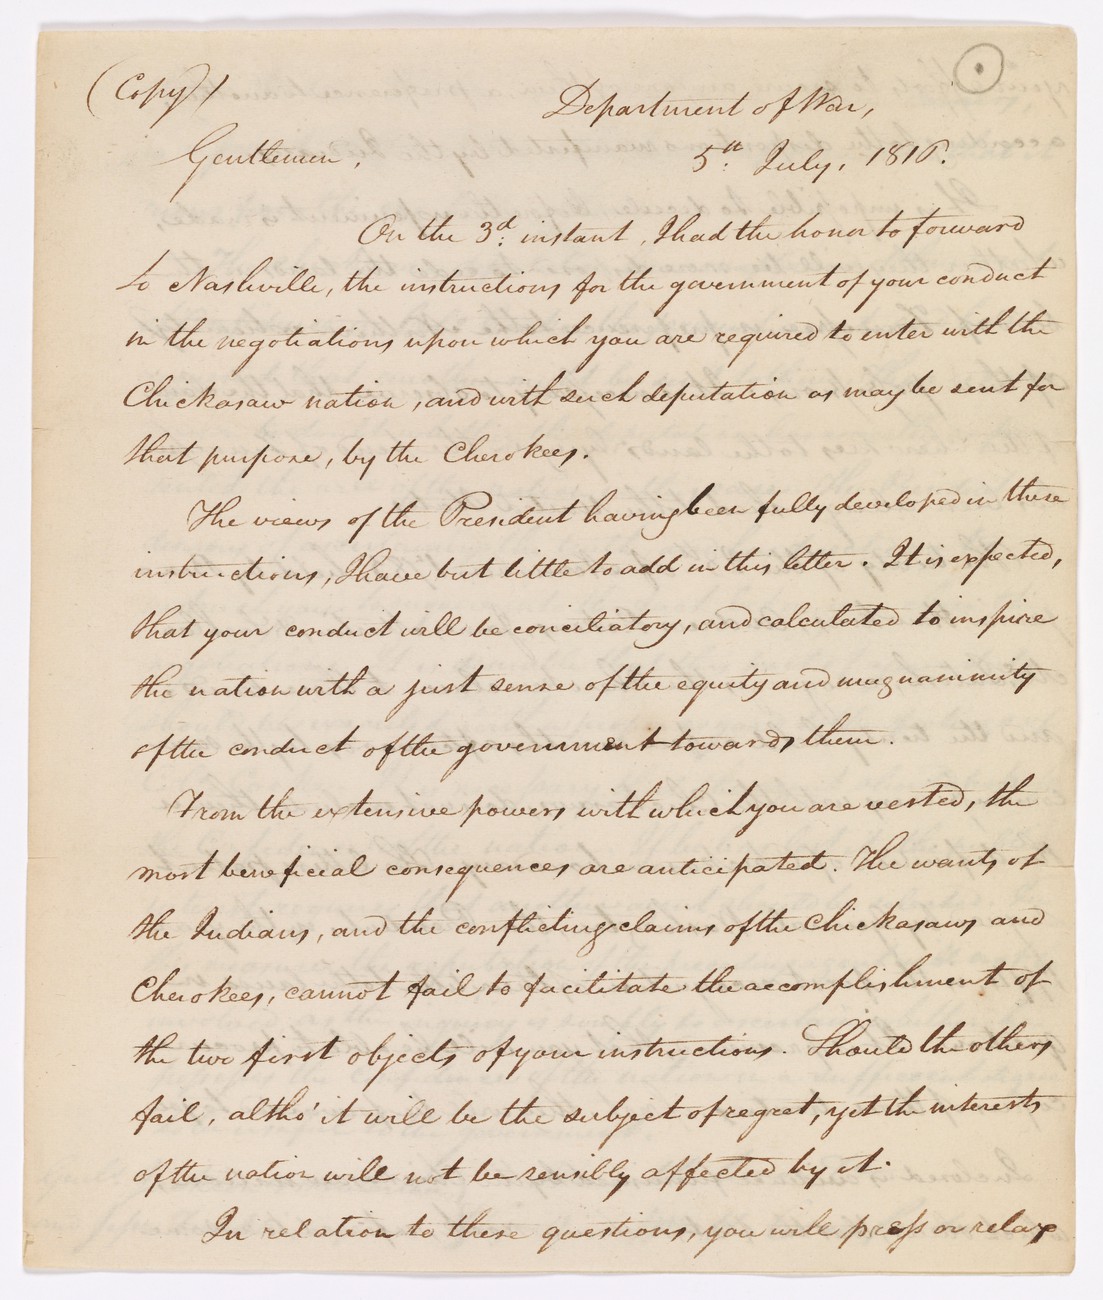 (Copy)
Department of War,
Gentlemen,
5th July, 1816.
On the 3d: instant, I had the honor to forward
to Nashville, the instructions for the government of your conduct
in the negotiations upon which you are required to enter with the
Chickasaw nation, and with such deputation as may be sent for
that purpose, by the Cherokees.
The views of the President having been fully developed in these
instructions, I have but little to add in this letter. It is expected,
that your conduct will be conciliatory, and calculated to inspire
the nation with a just sense of the equity and magnanimity
of the conduct of the government towards them.
From the extensive powers with which you are vested, the
most beneficial consequences are anticipated. The wants of
the Indians, and the conflicting claims of the Chickasaws and
Cherokees, cannot fail to facilitate the accomplishment of
the two first objects of your instructions. Should the others
fail, altho' it will be the subject of regret, yet the interests
of the nation will not be sensibly affected by it.
In relation to these questions, you will press or relax